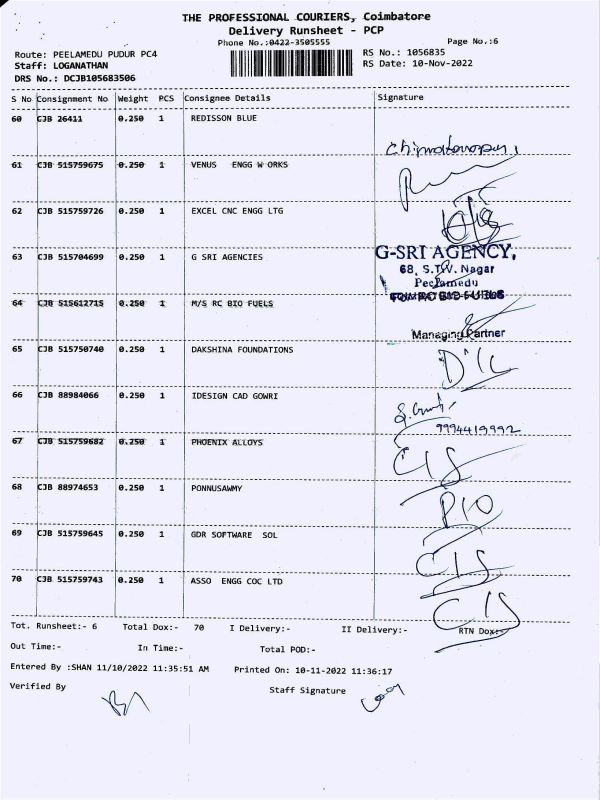 THE PROFESSIONAL COURIERS, Coimbatore
Delivery Runsheet - PCP
Phone No.:0422-3505555 Page No.:6
Route: PEELAMEDU PUDUR PC4 RS No.: 1056835
Staff: LOGANATHAN RS Date: 10-Nov-2022
DRS No.: DCJB105683506
S No Consignment No Weight PCS Consignee Details Signature
60 CJB 26411 0.250 1 REDISSON BLUE
61 CJB 515759675 0.250 1 VENUS ENGG W ORKS
62 CJB 515759726 0.250 1 EXCEL CNC ENGG LTG
63 CJB 515704699 0.250 1 G SRI AGENCIES G-SRI AGENCY,
68, S.T.V. Nagar
Peelamedu
64 CJB 515612715 0.250 1 M/S RC BIO FUELS
Managing Partner
65 CJB 515750740 0.250 1 DAKSHINA FOUNDATIONS
D'lc
66 CJB 88984066 0.250 1 IDESIGN CAD GOWRI
9994419992
67 CJB 515759682 0.250 1 PHOENIX ALLOYS
C/S
68 CJB 88974653 0.250 1 PONNUSAWMY
P/O
69 CJB 515759645 0.250 1 GDR SOFTWARE SOL
C/S
70 CJB 515759743 0.250 1 ASSO ENGG COC LTD
C/S
Tot. Runsheet:- 6 Total Dox:- 70 I Delivery:- II Delivery:- RTN Dox:-
Out Time:- In Time:- Total POD:-
Entered By :SHAN 11/10/2022 11:35:51 AM Printed On: 10-11-2022 11:36:17
Verified By Staff Signature